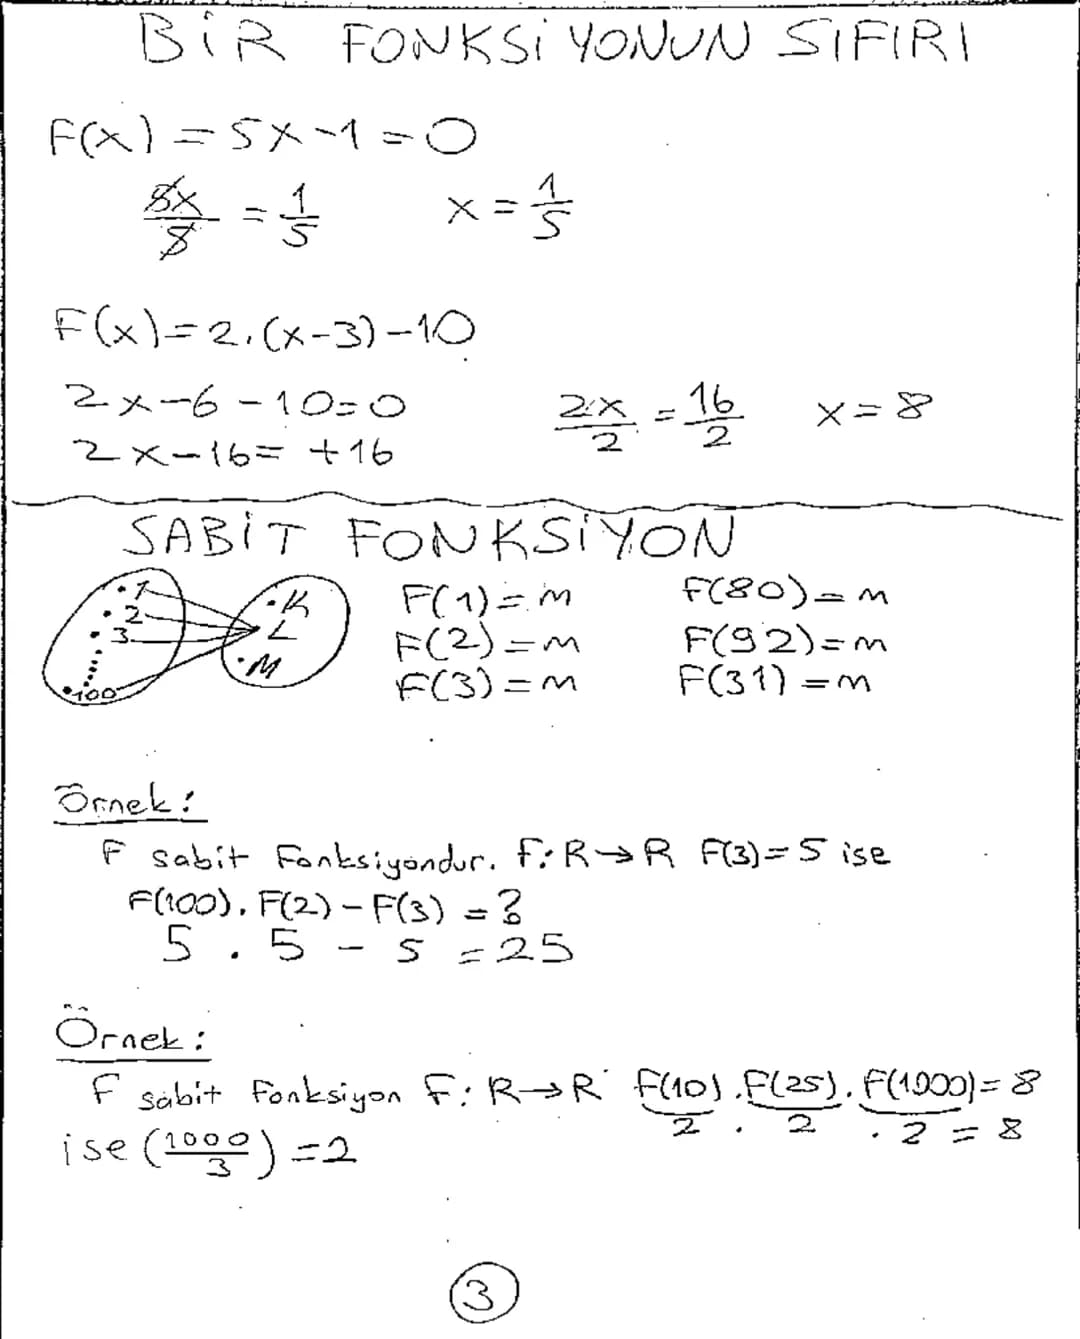 BİR FONKSİYONUN SIFIRI
F(x) = 5x-1 = 0
5x/5 = 1/5 x = 1/5
F(x) = 2.(x-3)-10
2x-6-10=0
2x/2 = 16/2 x = 8
2x-16= +16
SABİT FONKSİYON
.1 .2 .3 ..... .100
.K L .M
F(1) = m F(80) = m
F(2) = m F(92) = m
F(3) = m F(31) = m
Örnek:
F sabit Fonksiyondur. f: R→R F(3)=5 ise
F(100). F(2) - F(3) = ?
5 . 5 - 5 = 25
Örnek:
F sabit Fonksiyon F: R→R F(10).F(25).F(1000)=8
2 . 2 . 2 = 8
ise (1000/3) = 2
3